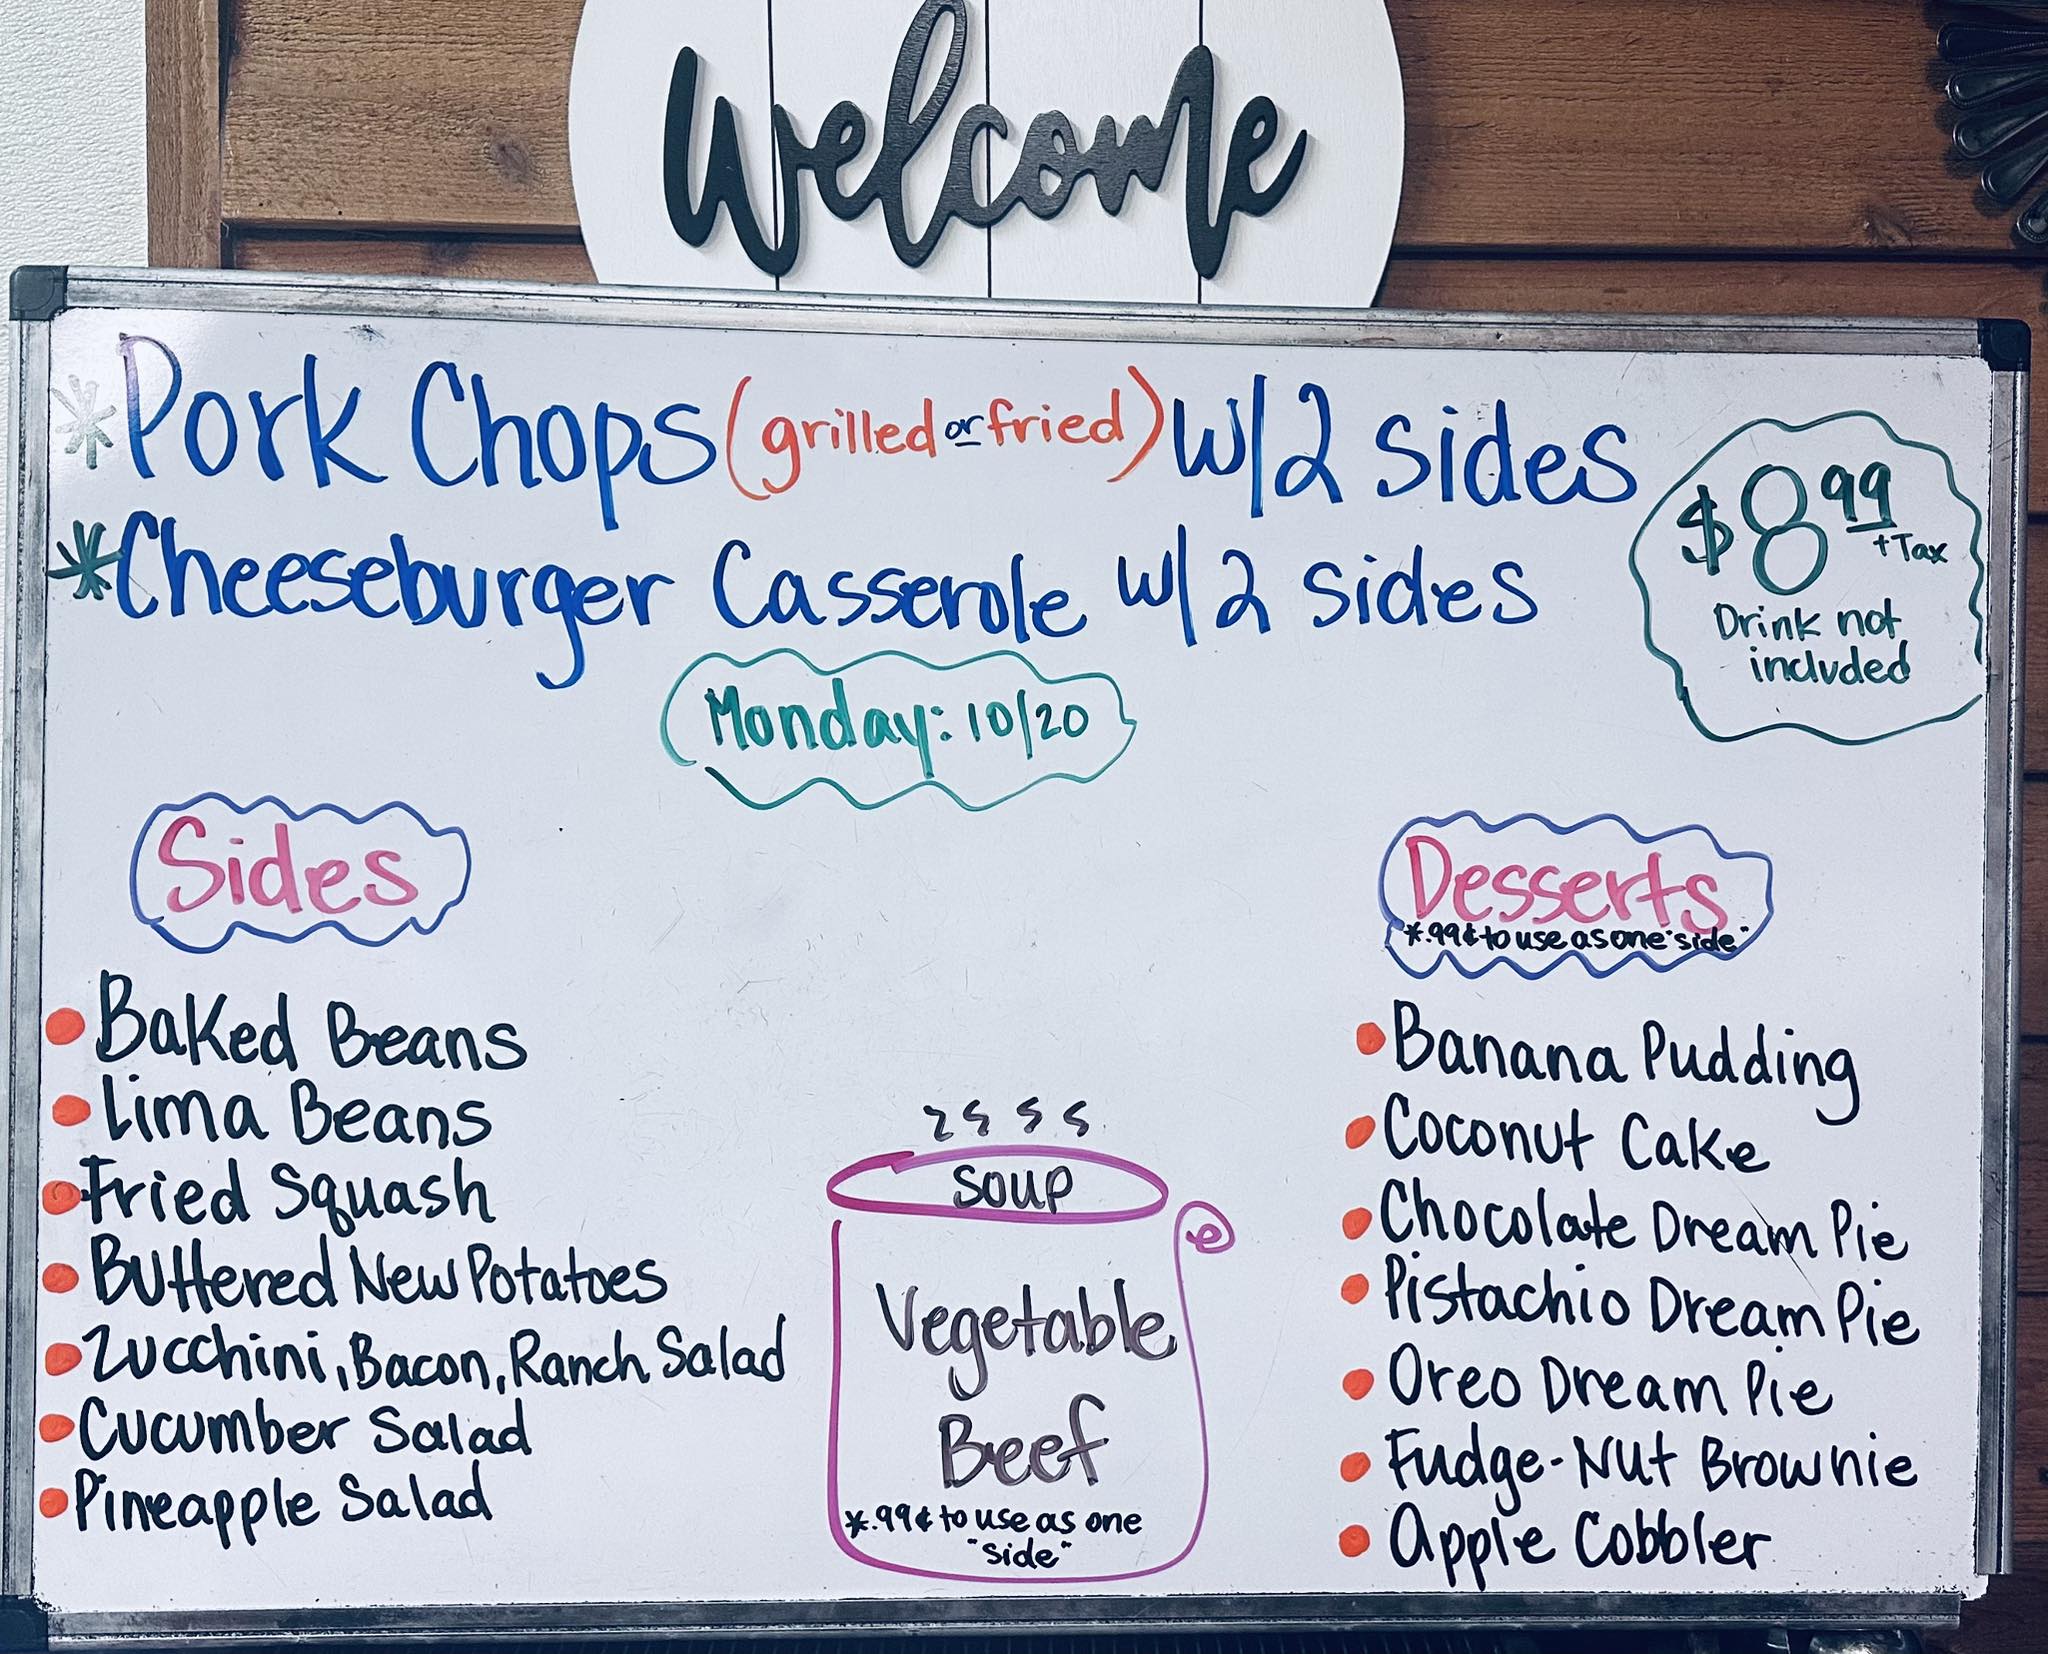 Welcome
*Pork Chops (grilled or fried) w/2 sides
*Cheeseburger Casserole w/2 sides
$8.99
+Tax
Drink not
included
Monday: 10/20
Sides
Baked Beans
Lima Beans
Fried Squash
Buttered New Potatoes
Zucchini, Bacon, Ranch Salad
Cucumber Salad
Pineapple Salad
Soup
Vegetable
Beef
*.99¢ to use as one
"side"
Desserts
*.99¢ to use as one "side"
Banana Pudding
Coconut Cake
Chocolate Dream Pie
Pistachio Dream Pie
Oreo Dream Pie
Fudge-Nut Brownie
Apple Cobbler